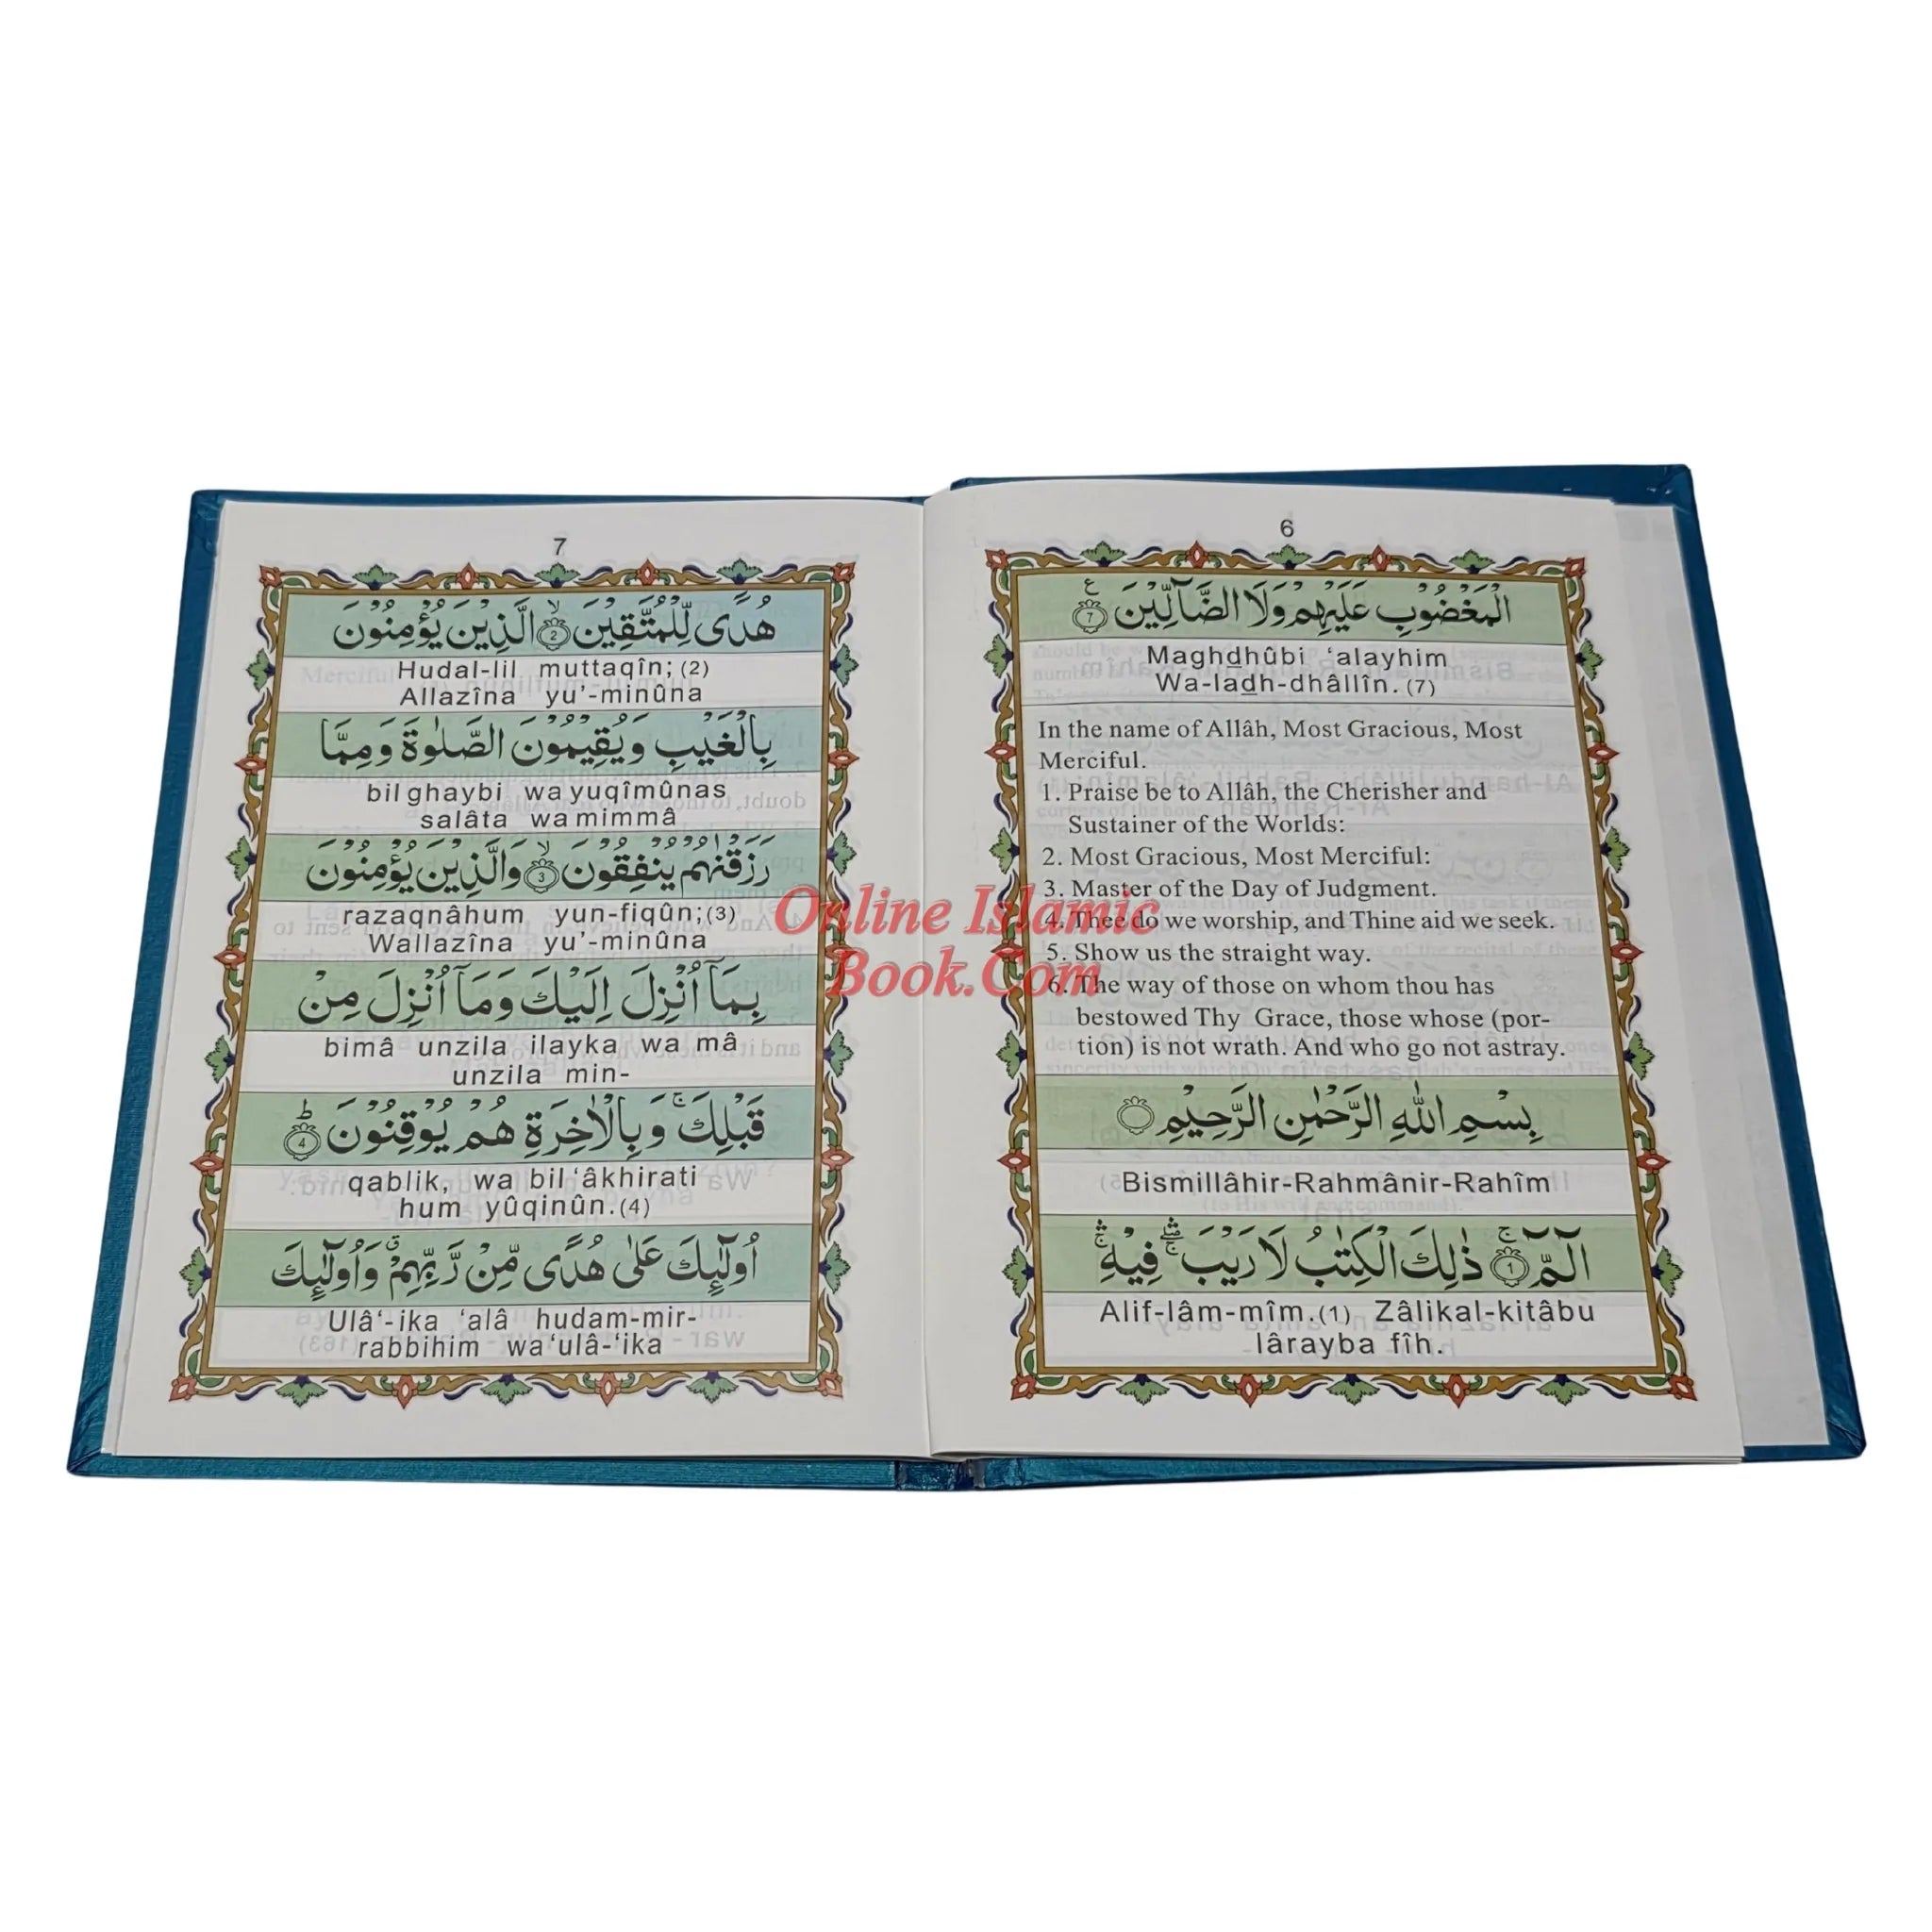 6
الْمَغْضُوْبِ عَلَيْهِمْ وَلَا الضَّآلِّيْنَ ۝7 ع
Maghdhûbi ‘alayhim
Wa-ladh-dhâllîn. (7)
In the name of Allâh, Most Gracious, Most
Merciful.
1. Praise be to Allâh, the Cherisher and
Sustainer of the Worlds:
2. Most Gracious, Most Merciful:
3. Master of the Day of Judgment.
4. Thee do we worship, and Thine aid we seek.
5. Show us the straight way.
6. The way of those on whom thou has
bestowed Thy Grace, those whose (por-
tion) is not wrath. And who go not astray.
بِسْمِ اللّٰهِ الرَّحْمٰنِ الرَّحِيْمِ ۝
Bismillâhir-Rahmânir-Rahîm
الٓمّٓ ۝1ۚ ذٰلِكَ الْكِتٰبُ لَا رَيْبَ ۛۖ فِيْهِ ۛۚ
Alif-lâm-mîm.(1) Zâlikal-kitâbu
lârayba fîh.
7
هُدًى لِّلْمُتَّقِيْنَ ۝2ۙ الَّذِيْنَ يُؤْمِنُوْنَ
Hudal-lil muttaqîn; (2)
Allazîna yu’-minûna
بِالْغَيْبِ وَيُقِيْمُوْنَ الصَّلٰوةَ وَمِمَّا
bil ghaybi wa yuqîmûnas
salâta wa mimmâ
رَزَقْنٰهُمْ يُنْفِقُوْنَ ۝3ۙ وَالَّذِيْنَ يُؤْمِنُوْنَ
razaqnâhum yun-fiqûn;(3)
Wallazîna yu’-minûna
بِمَآ اُنْزِلَ اِلَيْكَ وَمَآ اُنْزِلَ مِنْ
bimâ unzila ilayka wa mâ
unzila min-
قَبْلِكَ ۚ وَبِالْاٰخِرَةِ هُمْ يُوْقِنُوْنَ ۝4ؕ
qablik, wa bil‘âkhirati
hum yûqinûn.(4)
اُولٰٓئِكَ عَلٰى هُدًى مِّنْ رَّبِّهِمْ ۗ وَاُولٰٓئِكَ
Ulâ‘-ika ‘alâ hudam-mir-
rabbihim wa‘ulâ-‘ika
Online Islamic
Book.Com